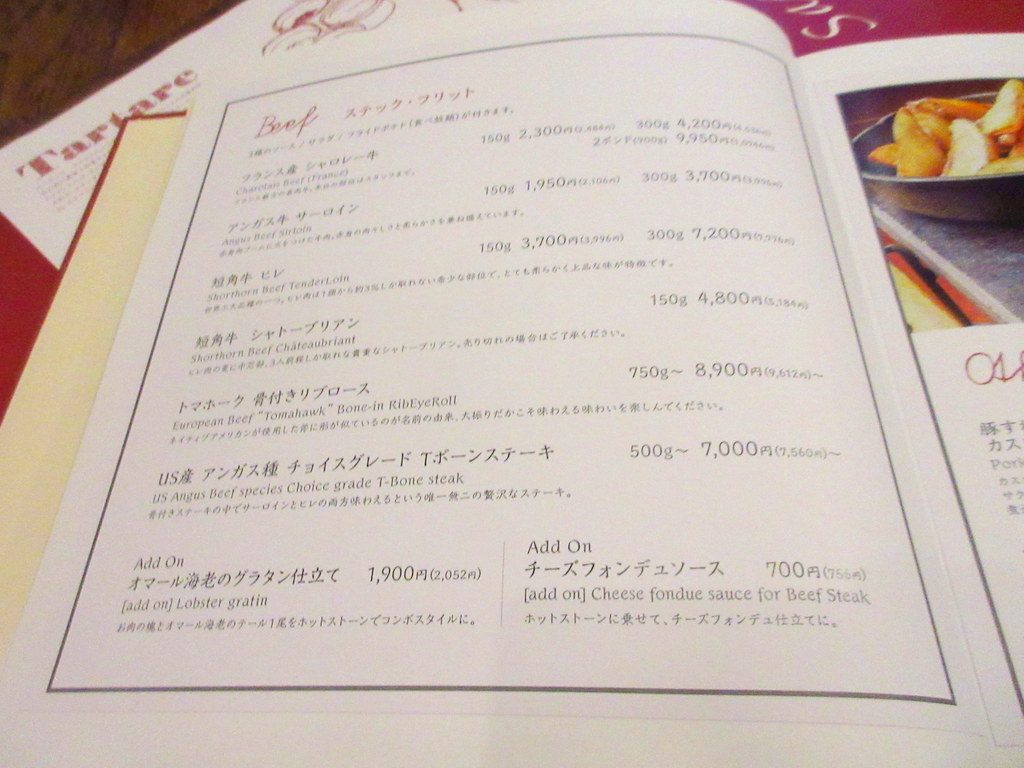 Tartare
Beef ステック・フリット
3種のソース / サラダ / フライドポテト(食べ放題)が付きます。
フランス産 シャロレー牛 150g 2,300円(2,484円) 300g 4,200円(4,536円)
Charolais Beef (France) 2ポンド(900g) 9,950円
アンガス牛 サーロイン 150g 1,950円(2,106円) 300g 3,700円(3,996円)
Angus Beef Sirloin
短角牛 ヒレ 150g 3,700円(3,996円) 300g 7,200円(7,776円)
Shorthorn Beef TenderLoin
短角牛 シャトーブリアン 150g 4,800円(5,184円)
Shorthorn Beef Châteaubriant
ヒレ肉の更に中芯部、3人前程しか取れな貴重なシャトーブリアン。売り切れの場合はご了承ください。
トマホーク 骨付きリブロース 750g～ 8,900円(9,612円)～
European Beef "Tomahawk" Bone-in RibEyeRoll
ネイティブアメリカンが使用した斧に形が似ているのが名前の由来。大振りだかこそ味わえる味わいを楽しんでください。
US産 アンガス種 チョイスグレード Tボーンステーキ 500g～ 7,000円(7,560円)～
US Angus Beef species Choice grade T-Bone steak
骨付きステーキの中でサーロインとヒレの両方味わえるという唯一無二の贅沢なステーキ。
Add On
オマール海老のグラタン仕立て 1,900円(2,052円)
[add on] Lobster gratin
お肉の塊とオマール海老のテール1尾をホットストーンでコンボスタイルに。
Add On
チーズフォンデュソース 700円(756円)
[add on] Cheese fondue sauce for Beef Steak
ホットストーンに乗せて、チーズフォンデュ仕立てに。
豚す
カス
Pork